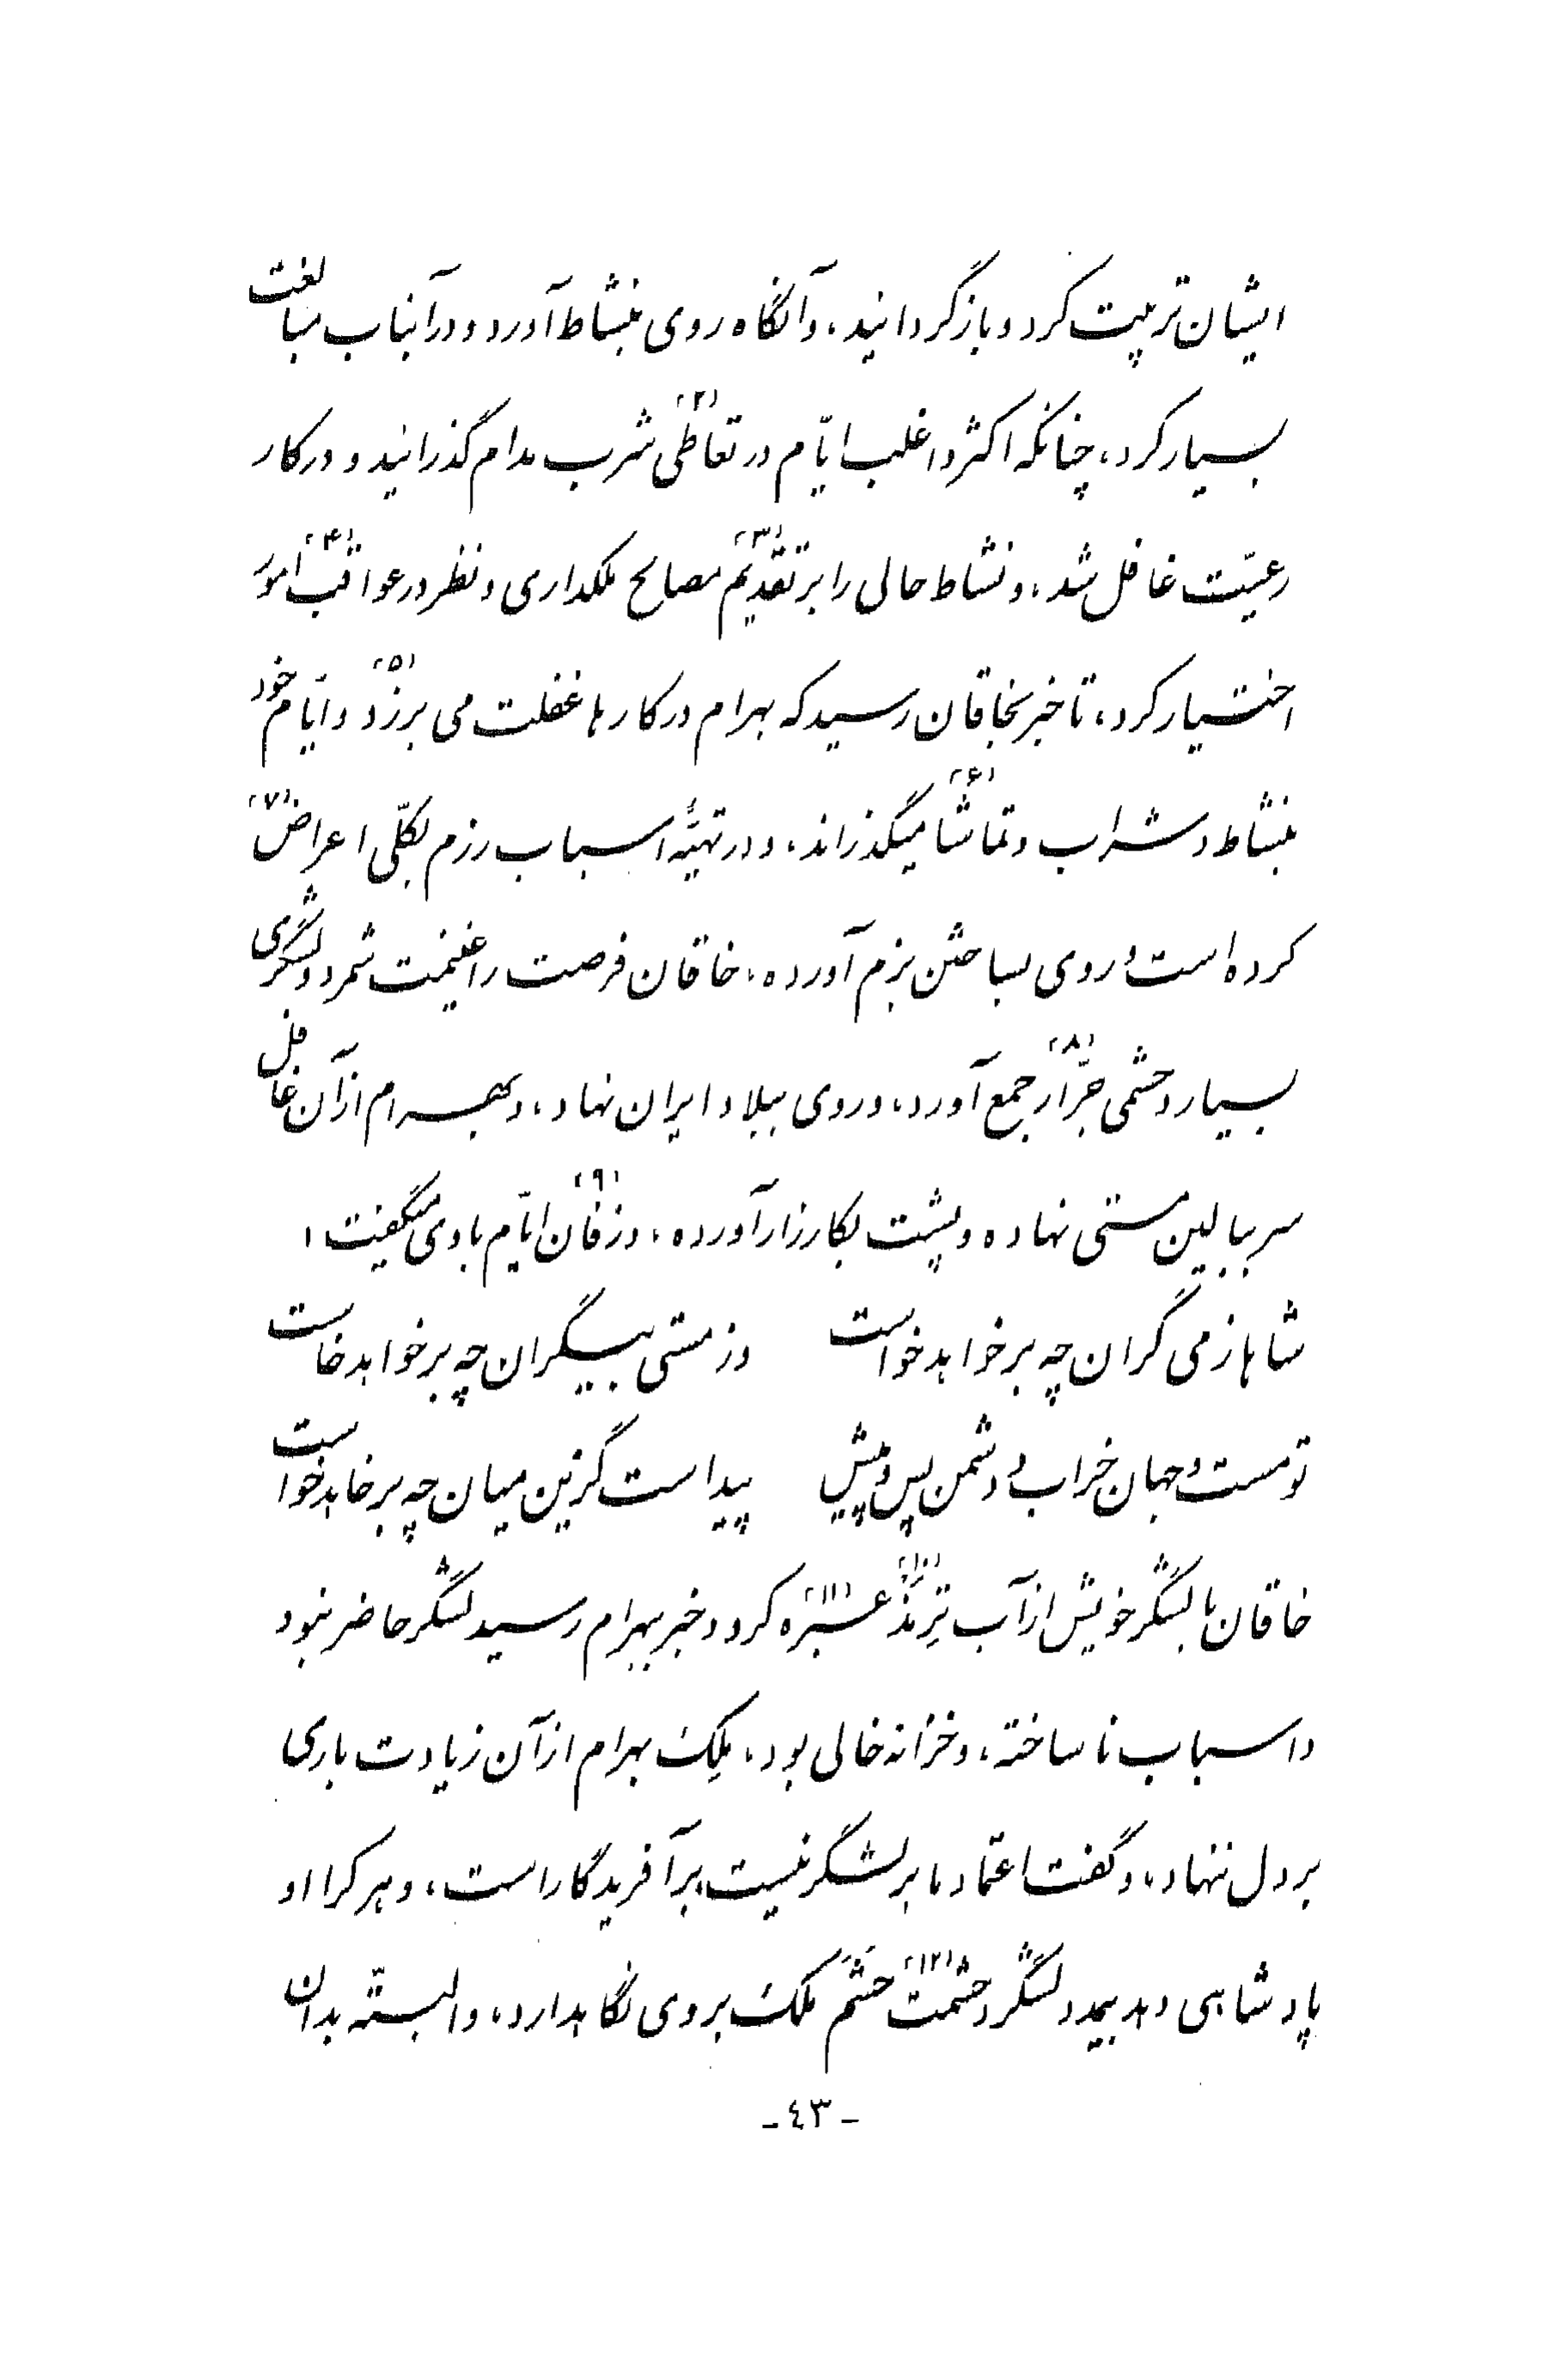 ایشان تربیت کرد و بازگردانید، و آنگاه روی بنشاط آورد و در آنباب مبالغت
بسیار کرد، چنانکه اکثر و اغلب ایّام در تعاطی (۲) شرب مدام گذرانید و در کار
رعیّت غافل شد، و نشاط حالی را بر تقدیم (۳) مصالح ملکداری و نظر در عواقب (۴) امور
اختیار کرد، تا خبر بخاقان رسید که بهرام در کارها غفلت می برزد (۵) و ایّام خود
بنشاط و شراب و تماشا (۶) میگذراند، و در تهیّهٔ اسباب رزم بکلّی اعراض (۷)
کرده است و روی بساختن بزم آورده، خاقان فرصت را غنیمت شمرد و لشگری
بسیار و حشمی جرّار (۸) جمع آورد، و روی ببلاد ایران نهاد، و بهرام از آن غافل
سر ببالین مستی نهاده و پشت بکارزار آورده، و زفان (۹) ایّام با وی میگفت:
شاها ز می گران چه برخواهد خواست وز مستی بیگران چه برخواهد خاست
تو مست و جهان خراب و دشمن پس و پیش پیداست کزین میان چه برخاهد خواست
خاقان با لشگر خویش از آب تِرمَذ (۱۰) عبَرَه (۱۱) کرد و خبر ببهرام رسید لشگر حاضر نبود
و اسباب ناساخته، و خزانه خالی بود، مَلِک بهرام از آن زیادت باری
بر دل ننهاد، و گفت اعتماد ما بر لشگر نیست بر آفریدگار است، و هر کرا او
پادشاهی دهد بیمدد لشگر و حشمت (۱۲) حَشَم ملک بر وی نگاهدارد، و البتّه بدان
- ٤٣ -